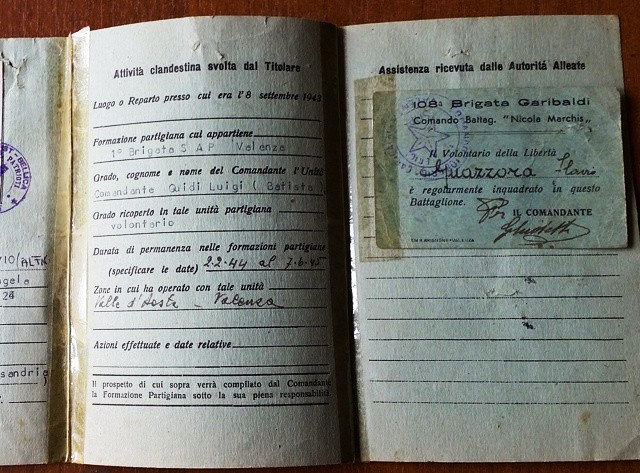 Attività clandestina svolta dal Titolare
Luogo o Reparto presso cui era l'8 settembre 1943
Formazione partigiana cui appartiene
1° Brigata S A P Valenza
Grado, cognome e nome del Comandante l'Unità
Comandante Quidi Luigi ( Batista )
Grado ricoperto in tale unità partigiana
volontario
Durata di permanenza nelle formazioni partigiane
(specificare le date) 2.2.44 al 7.6.45
Zone in cui ha operato con tale unità
Valle d'Aosta - Valenza
Azioni effettuate e date relative
Il prospetto di cui sopra verrà compilato dal Comandante
la Formazione Partigiana sotto la sua piena responsabilità.
Assistenza ricevuta dalle Autorità Alleate
108a Brigata Garibaldi
Comando Battag. "Nicola Marchis"
Il Volontario della Libertà
Guazzora Flavio
è regolarmente inquadrato in questo
Battaglione.
IL COMANDANTE
24